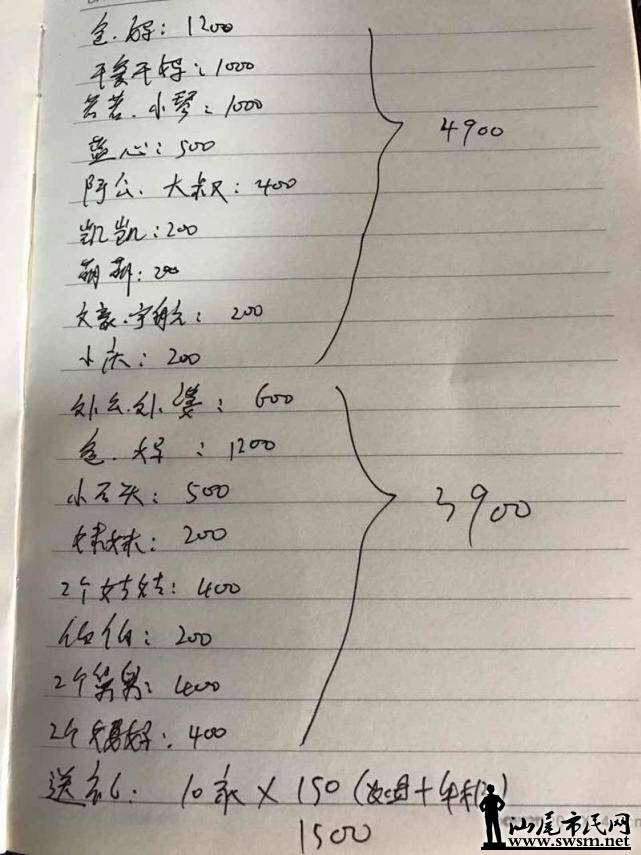 爸.妈: 1200
干爹干妈: 1000
若茗.小琴: 1000
蓝心: 500
阿公.大叔: 400
凯凯: 200
萌萌: 200
文豪.宇航: 200
小庆: 200
4900
外公.外婆: 600
爸.妈: 1200
小石头: 500
妹妹: 200
2个姑姑: 400
伯伯: 200
2个舅舅: 400
2个舅妈: 400
3900
送礼: 10家 × 150
1500
汕尾市民网
www.swsm.net